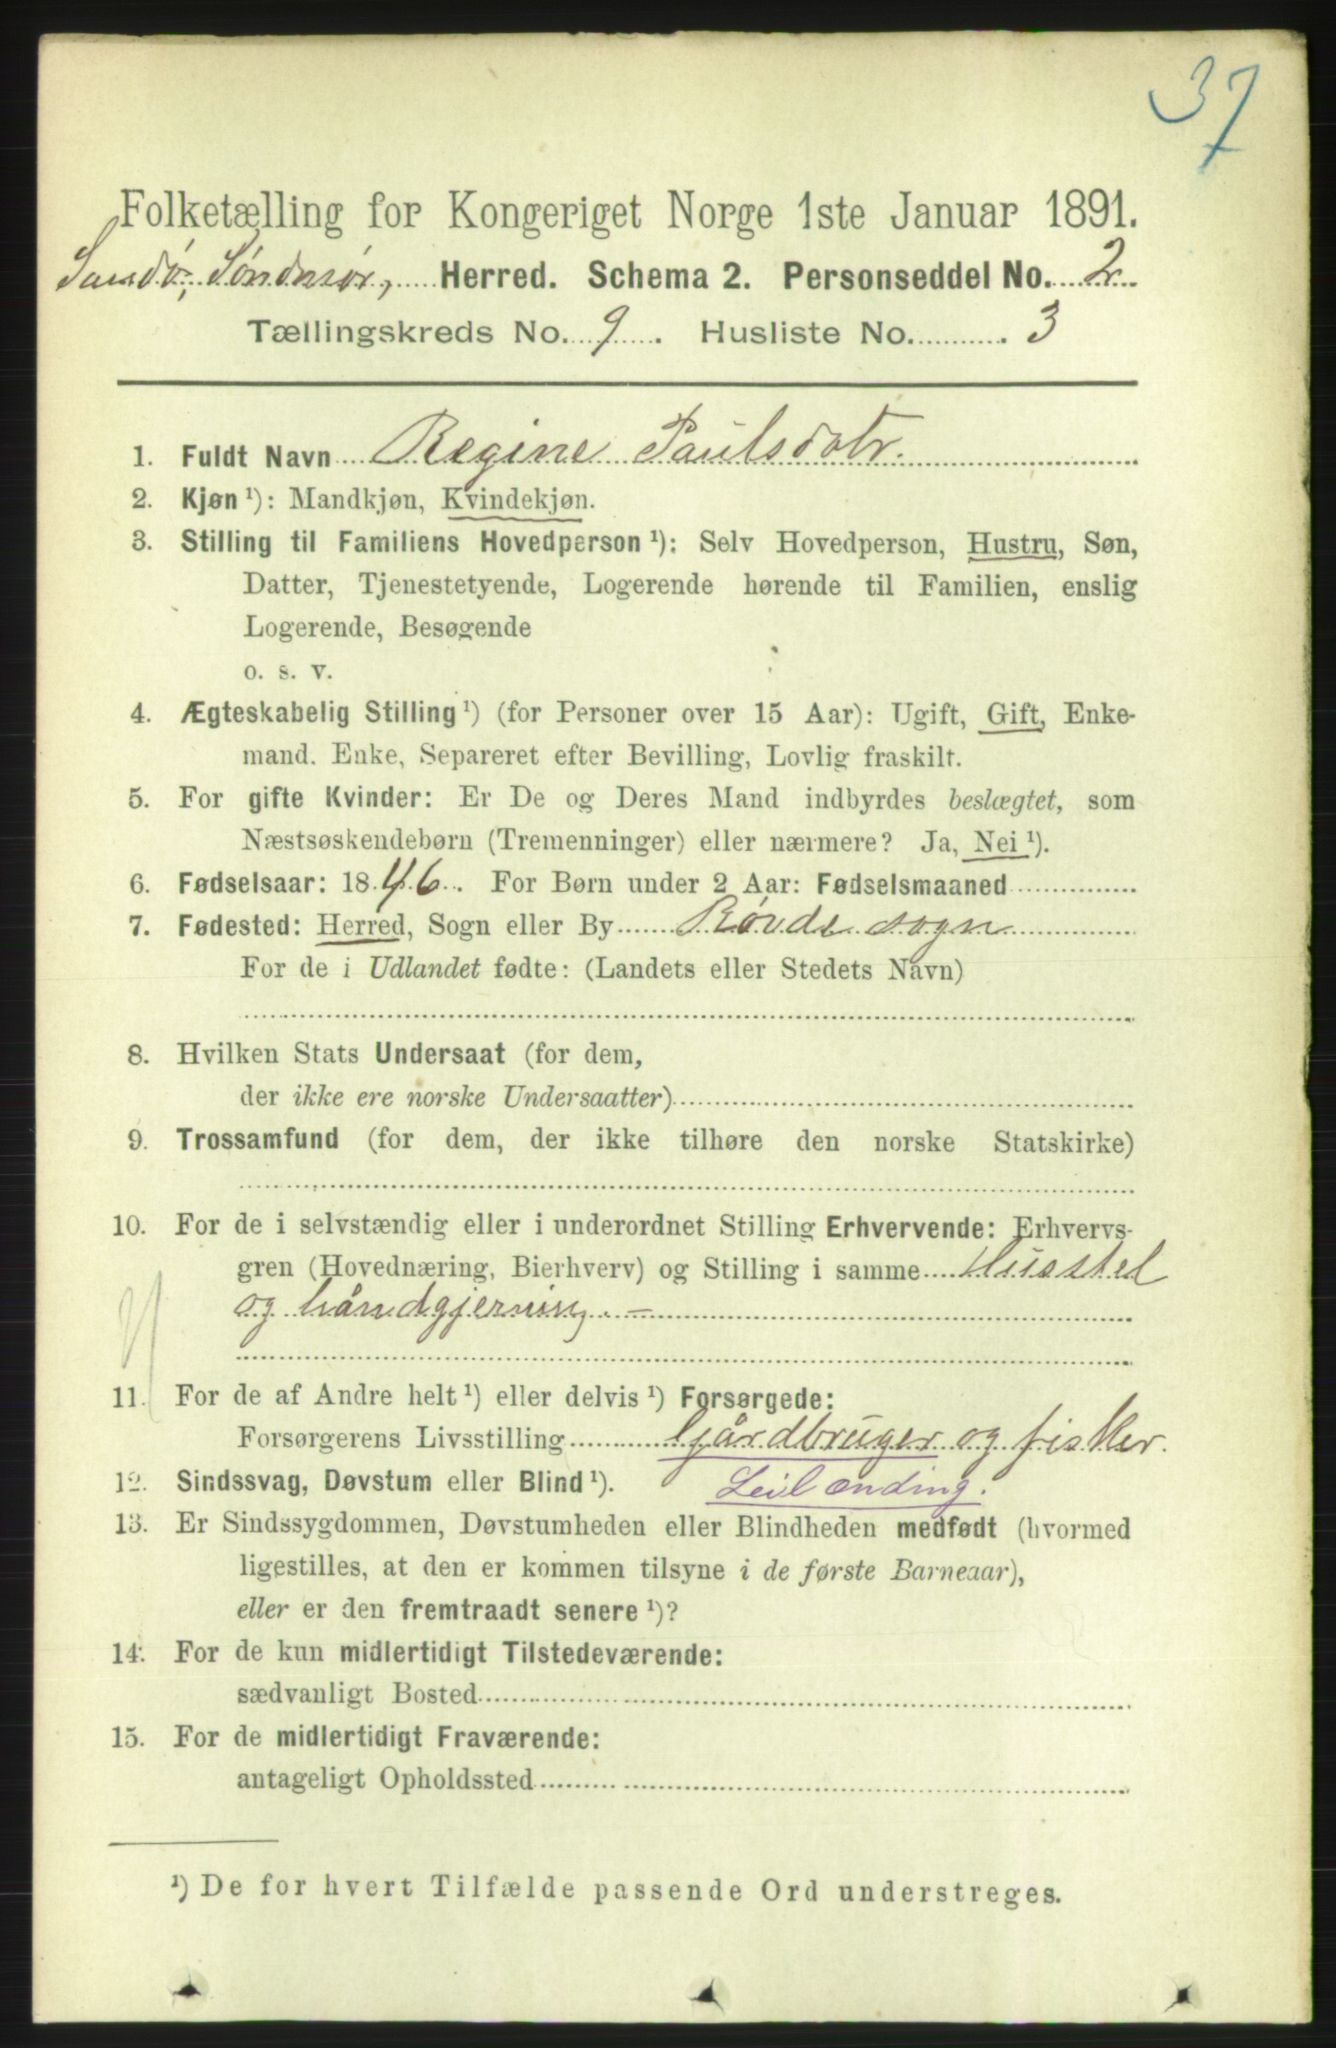 37
Folketælling for Kongeriget Norge 1ste Januar 1891.
Sandø, Søndmør, Herred. Schema 2. Personseddel No. 2
Tællingskreds No. 9. Husliste No. 3
1. Fuldt Navn Regine Paulsdatr.
2. Kjøn ¹): Mandkjøn, Kvindekjøn.
3. Stilling til Familiens Hovedperson ¹): Selv Hovedperson, Hustru, Søn,
Datter, Tjenestetyende, Logerende hørende til Familien, enslig
Logerende, Besøgende
o. s. v.
4. Ægteskabelig Stilling ¹) (for Personer over 15 Aar): Ugift, Gift, Enke-
mand. Enke, Separeret efter Bevilling, Lovlig fraskilt.
5. For gifte Kvinder: Er De og Deres Mand indbyrdes beslægtet, som
Næstsøskendebørn (Tremenninger) eller nærmere? Ja, Nei ¹).
6. Fødselsaar: 1846. For Børn under 2 Aar: Fødselsmaaned
7. Fødested: Herred, Sogn eller By Røvde sogn
For de i Udlandet fødte: (Landets eller Stedets Navn)
8. Hvilken Stats Undersaat (for dem,
der ikke ere norske Undersaatter)
9. Trossamfund (for dem, der ikke tilhøre den norske Statskirke)
10. For de i selvstændig eller i underordnet Stilling Erhvervende: Erhvervs-
gren (Hovednæring, Bierhverv) og Stilling i samme Husstel
og håndgjerning. –
11. For de af Andre helt ¹) eller delvis ¹) Forsørgede:
Forsørgerens Livsstilling Gårdbruger og fisker.
12. Sindssvag, Døvstum eller Blind ¹). Leilænding.
13. Er Sindssygdommen, Døvstumheden eller Blindheden medfødt (hvormed
ligestilles, at den er kommen tilsyne i de første Barneaar),
eller er den fremtraadt senere ¹)?
14. For de kun midlertidigt Tilstedeværende:
sædvanligt Bosted
15. For de midlertidigt Fraværende:
antageligt Opholdssted
¹) De for hvert Tilfælde passende Ord understreges.